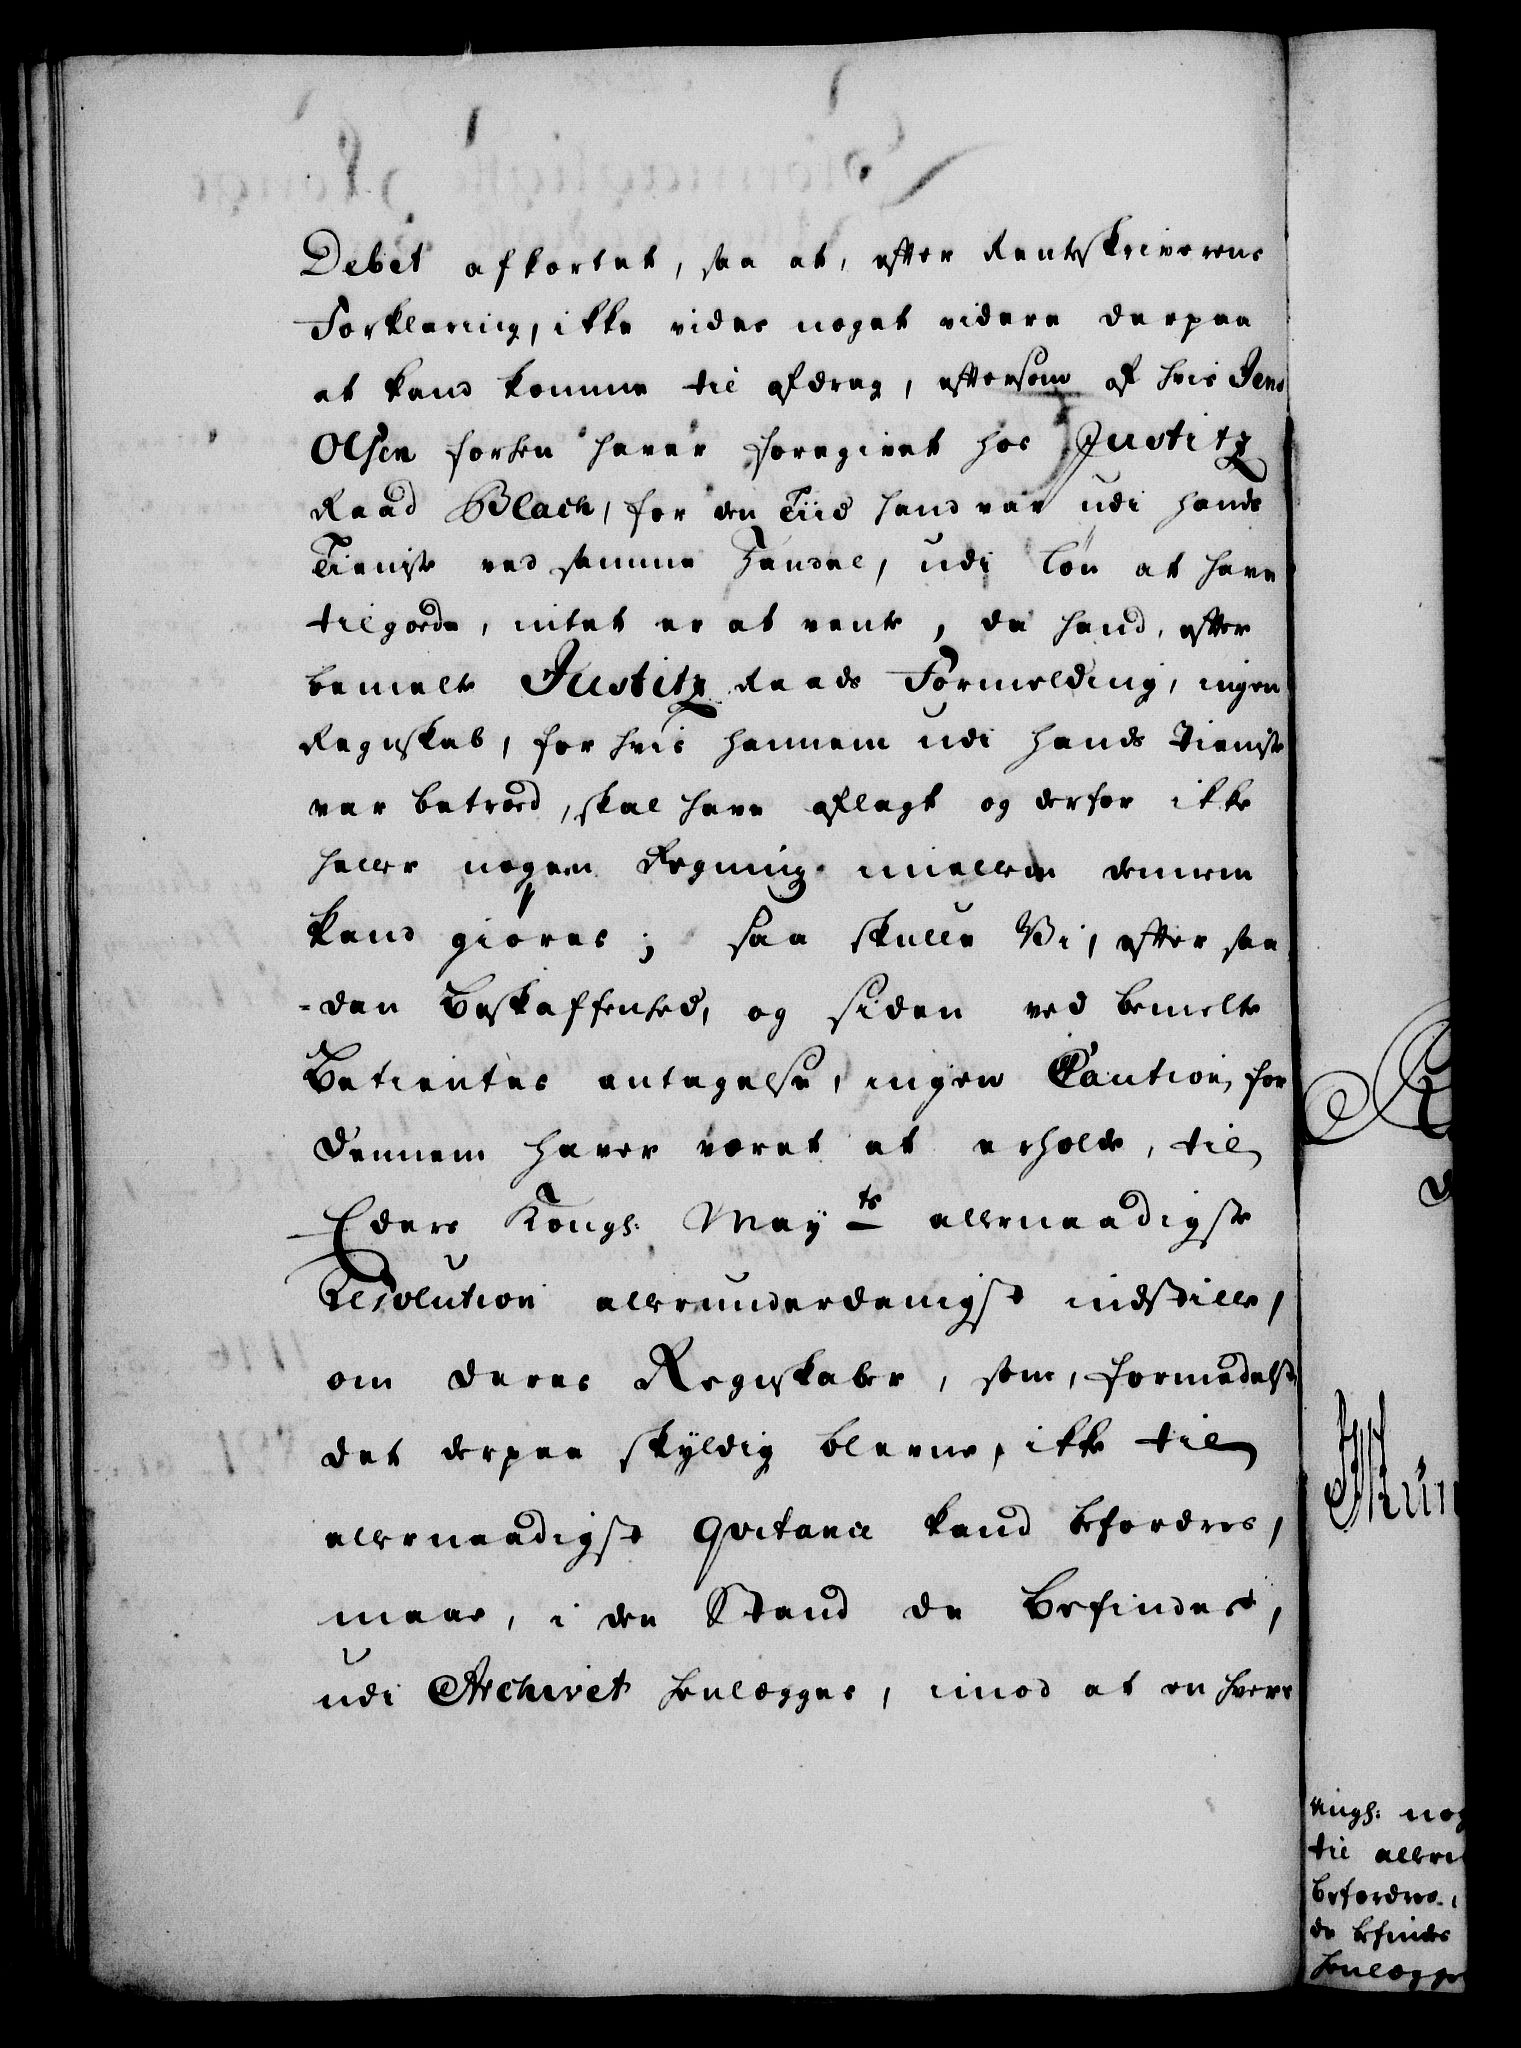 Debet afkortet, saa at, efter Renteskriverens
Forklaring, ikke vides noget videre derpaa
at kand komme til afdrag, eftersom af hvis Jens
Olsen Forsen haver foregivet hos Justitz
Raad Blach, for den Tiid hand var udi hands
Tieniste ved samme Handel, udi løn at have
tilgode, intet er at vente, da hand, efter
bemelte Justitz Raads Formelding, ingen
Regnskab, for hvis hannem udi hands Tieniste
var betroed, skal have aflagt og derfor ikke
heller nogen Regning imellem dennem
kand giøres; Saa skulle Vi, efter saa
-dan Beskaffenhed, og siden ved bemelte
Betientes antagelse, ingen Caution for
dennem haver været at erholde, til
Eders Kongl: May<sup>ts</sup> allernaadigste
Resolution allerunderdanigst indstille,
om deres Regnskaber, som, formedelst
det derpaa skyldig bleevne, ikke til
allernaadigst Qvitance kand befordres,
maae, i den Stand de befindes,
udi Archivet henlægges, imod at en hver
nog
til aller
befordres,
de befindes
henlægges